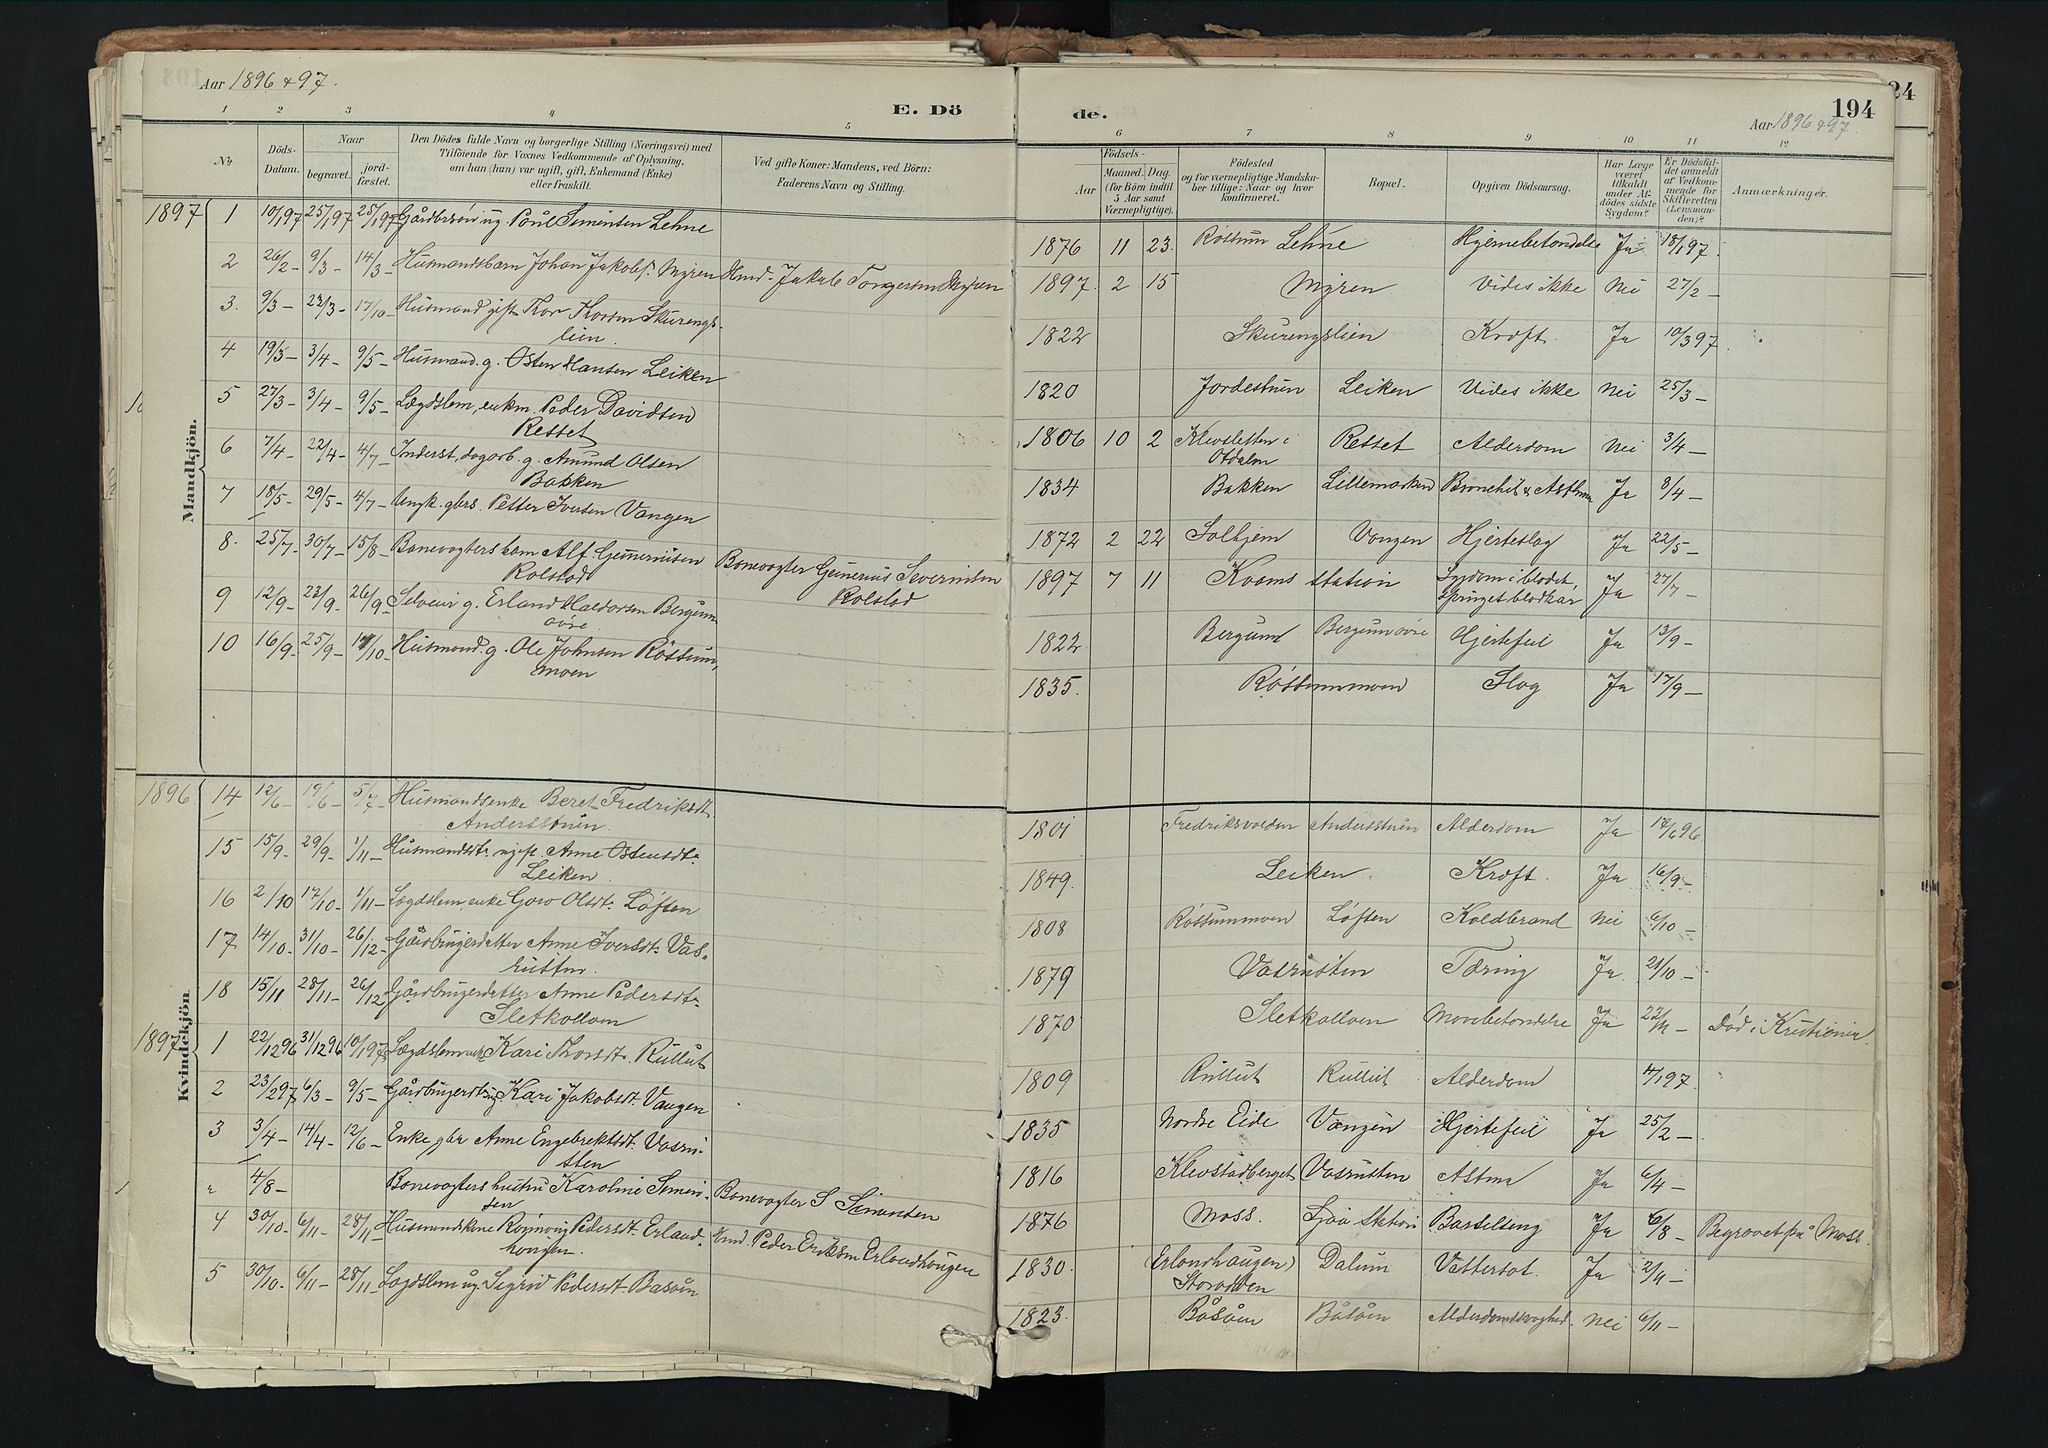 Aar 1896 & 97.
E. Dö
de.
194
24
Aar 1896 & 97.
1 2 3 4 5 6 7 8 9 10 11 12
No
Döds-
Datum.
Naar
begravet.
jord-
fæstet.
Den Dödes fulde Navn og borgerlige Stilling (Næringsvei) med
Tilföiende for Voxnes Vedkommende af Oplysning,
om han (hun) var ugift, gift, Enkemand (Enke)
eller fraskilt.
Ved gifte Koner: Mandens, ved Börn:
Faderens Navn og Stilling.
Födsels-
Aar
Maaned. Dag.
(for Börn indtil
5 Aar samt
Værnepligtige).
Födested
og for værnepligtige Mandska-
ber tillige: Naar og hvor
konfirmeret.
Bopæl.
Opgiven Dödsaarsag.
Har Læge
været
tilkaldt
under Af-
dödes sidste
Sygdom?
Er Dödsfal-
det anmeldt
af Vedkom-
mende for
Skifteretten
(Lensman-
den)?
Anmærkninger.
Mandkjön.
1897 1 10/1 97 25/1 97 25/1 97 Gårdbrsøn ug. Poul Simensen Lehne 1876 11 23 Røssum Lehne Hjernebetendelse Ja 18/1 97.
2 26/2 - 9/3 - 14/3 - Husmandsbarn Johan Jakobs. Myren Hmd. Jakob Torgersen Myren 1897 2 15 Myren Vides ikke Nei 27/2 -
3. 9/3 - 23/3 - 17/10 - Husmand gift Thor Thorsen Skurengs-
lien. 1822 Skurengslien Kræft. Ja 10/3 97.
4 19/3 - 3/4 - 9/5 - Husmand. g. Østen Hansen Leiken 1820 Jordestuen Leiken Vides ikke Nei 25/3 -
5 27/3 - 3/4 - 9/5 - Lægdslem, enkm. Peder Davidsen
Resset 1806 10 2 Klevsletten i
Otdalen Resset Alderdom Nei 3/4 -
6 7/4 - 22/4 - 4/7 - Inderst, dagarb. g. Amund Olsen
Bakken 1834 Bakken Lillemarken Bronchit & Asthma Ja 8/4 -
7 18/5 - 29/5 - 4/7 - Ungk. gbrs. Petter Iversen Vangen 1872 2 22 Solhjem Vangen Hjerteslag Ja 22/5 -
8. 25/7 - 30/7 - 15/8 - Banevogters barn Alf Gunerius en
Rolstad Banevogter Gunerius Severinsen
Rolstad 1897 7 11 Kvams station Sygdom i blodet,
sprunget blodkar Ja 27/7 -
9 12/9 - 23/9 - 26/9 - Selveier g. Erland Haldorsen Bergum
øvre 1822 Bergum Bergum øvre Hjertefeil Ja 13/9 -
10 16/9 - 25/9 - 17/10 - Husmand. g. Ole Johnsen Røssum-
moen 1835. Røssummoen Slag Ja 17/9 -
Kvindekjön.
1896. 14 12/6 - 19/6 - 5/7 - Husmandsenke Beret Fredriksdt.
Andersstuen. 1801 Fredriksvolden Andersstuen Alderdom Ja 17/6 96
15 15/9 - 29/9 - 1/11 - Husmandsdt. ugift. Anne Østensdt.
Leiken 1849. Leiken. Kræft. Ja 16/9 -
16 2/10 17/10 - 1/11 - Lægdslem, enke Goro Olsdt. Løften 1808 Røssummoen Løften Koldbrand Nei 6/10 -
17 14/10 - 31/10 - 26/12 - Gårdbrugerdatter Anne Iversdt. Vas-
rusten. 1879 Vasrusten Tæring Ja 21/10 -
18 15/11 28/11 - 26/12 Gårdbrugerdatter Anne Pedersdt.
Sletkolloen 1870 Sletkolloen Mavebetendelse Ja 22/11 - Død i Kristiania.
1897 1 22/12 96 31/12 96 10/1 97 Lægdslem enke Kari Thorsdt. Rullut 1809 Rullut Rullut Alderdom 4/1 97.
2 23/2 97 6/3 - 9/5 - Gårdbrugerdt. ug. Kari Jakobsdt. Vangen 1835 Nordre Eide Vangen Hjertefeil Ja 25/2 -
3 3/4 - 14/4 - 12/6 - Enke, gbr Anne Engebrektsdt. Vasru-
sten 1816 Klevstadberget Vasrusten Astma Ja 6/4 -
a 4/8 - Banevogters hustru Karoline Simen-
sen Banevogter S Simensen 1876 Moss. Sjoa Station Barselseng Ja 6/8 - Begravet på Moss.
4 30/10 - 6/11 - 28/11 Husmandskone Rønnoug Pedersdt. Erland-
haugen. Hmd. Peder Eriksen Erlandhaugen 1830. (Erlandhaugen)
Storodden Dalum Vattersot. Ja 2/11 -
5 30/10 - 6/11 - 28/11 Lægdslem ug. Sigrid Pedersdt. Båsåen 1823. Båsåen Båsåen Alderdomssvaghed. Nei 6/11 -